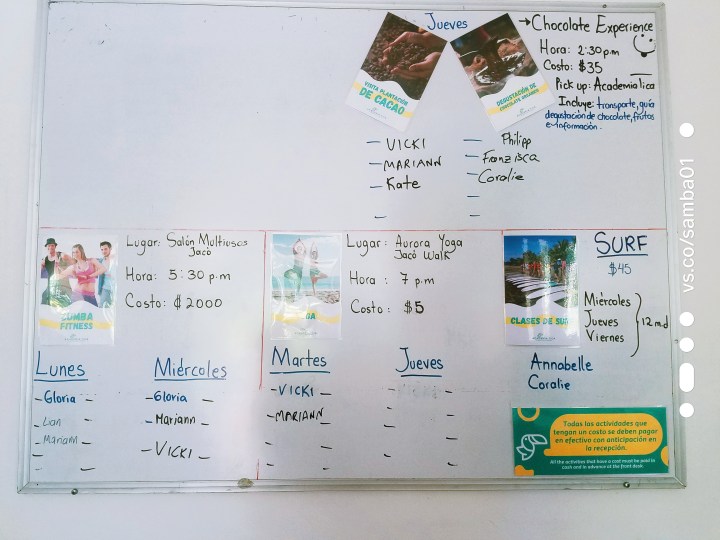 Jueves
VISITA PLANTACIÓN
DE CACAO
DEGUSTACIÓN DE
CHOCOLATE ORGÁNICO
→Chocolate Experience
Hora: 2:30 pm
Costo: $35
Pick up: Academia lica
Incluye: transporte, guía
degustación de chocolate, frutos
e información.
- VICKI
- MARIANN
- Kate
-
- Philipp
- Franzisca
- Coralie
-
-
ZUMBA
FITNESS
Lugar: Salón Multiusos
Jacó
Hora: 5:30 p.m
Costo: ₡2000
Lunes
- Gloria -
- Lian -
- Mariann -
- -
Miércoles
- Gloria -
- Mariann -
- VICKI -
Lugar: Aurora Yoga
Jacó Walk
Hora : 7 p.m
Costo : $5
Martes
- VICKI -
- MARIANN -
- -
- -
Jueves
CLASES DE SURF
SURF
$45
Miércoles
Jueves
Viernes
12 m.d
Annabelle
Coralie
Todas las actividades que
tengan un costo se deben pagar
en efectivo con anticipación en
la recepción.
All the activities that have a cost must be paid in
cash and in advance at the front desk.
vs.co/samba01